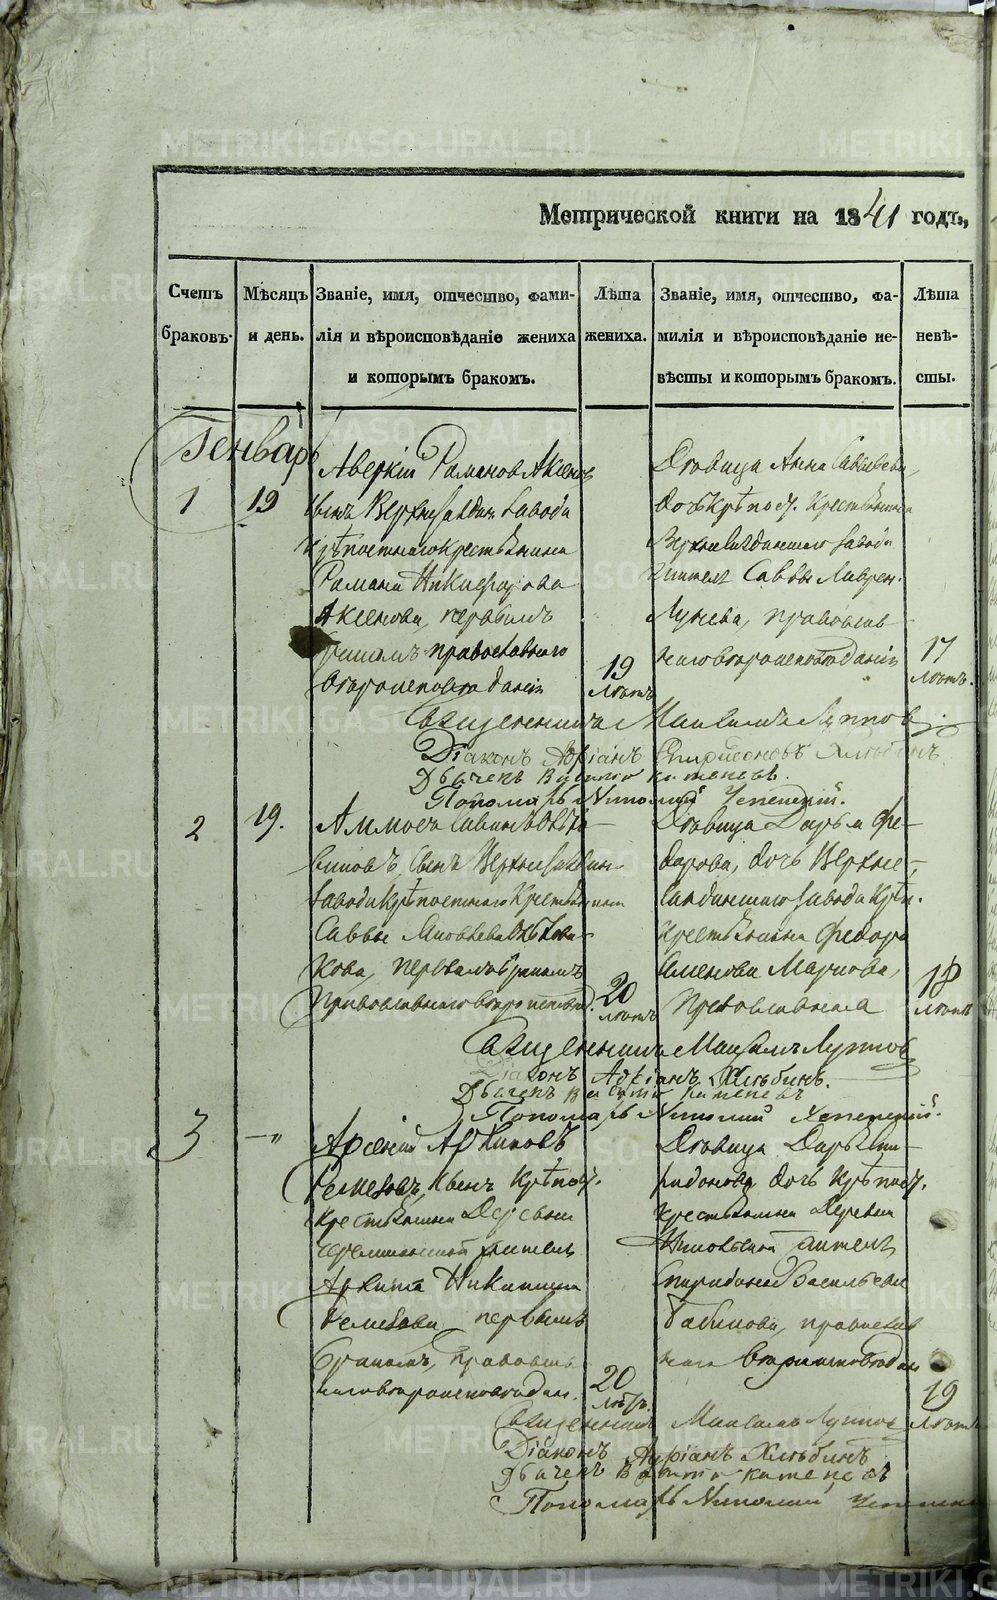 METRIKI.GASO-URAL.RU
Метрической книги на 1841 годъ,
Счетъ браковъ.
Мѣсяцъ и день.
Званіе, имя, отчество, фами-
лія и вѣроисповѣданіе жениха
и которымъ бракомъ.
Лѣта жениха.
Званіе, имя, отчество, фа-
милія и вѣроисповѣданіе не-
вѣсты и которымъ бракомъ.
Лѣта невѣ-
сты.
Генварь
1
19
Аверкій Романов Аксенов
сынъ Верхнесалдин завода
крѣпостнаго крестьянина
Романа Никифорова
Аксенова, первымъ
бракомъ православнаго
вѣроисповѣданія
19
лѣтъ
Дѣвица Анна Саввьева,
дочь крѣпос. крестьянина
Верхнесалдинскаго завода
жителя Саввы Лаврен.
Лунева, православ
наго вѣроисповѣданія
17
лѣтъ.
Священникъ Максимъ Луппов.
Діаконъ Адріанъ Хлѣбинъ
Дьячекъ
Пономарь Николай
2
19.
Аммосъ Саввинъ
сынъ Верхнесалдин
завода крѣпостнаго крестьянина
Саввы Яковлева
кова, первымъ бракомъ
Православнаго вѣроисповѣд.
20
лѣтъ
Дѣвица Дарья Фе-
дорова, дочь Верхне-
салдинскаго завода крѣп.
крестьянина Федора
Семенова Маркова,
Православнаго
18
лѣтъ
Священникъ Максимъ Луппов
Діаконъ Адріанъ Хлѣбинъ.
Дьячекъ
Пономарь Николай
3
—"
Арсеній Архиповъ
Ремезовъ, сынъ крѣпос.
крестьянина Деревни
жителя
Архипа Никитина
Ремезова, первымъ
бракомъ, православ
наго вѣроисповѣдан.
20
лѣтъ.
Дѣвица Дарья Спи-
ридонова дочь крѣпос.
крестьянина Деревни
жителя
Спиридона Васильева
Бабинова, православ
наго вѣроисповѣдан
19
лѣтъ
Священникъ Максимъ Луппов
Діаконъ Адріанъ Хлѣбинъ
Дьячекъ
Пономарь Николай